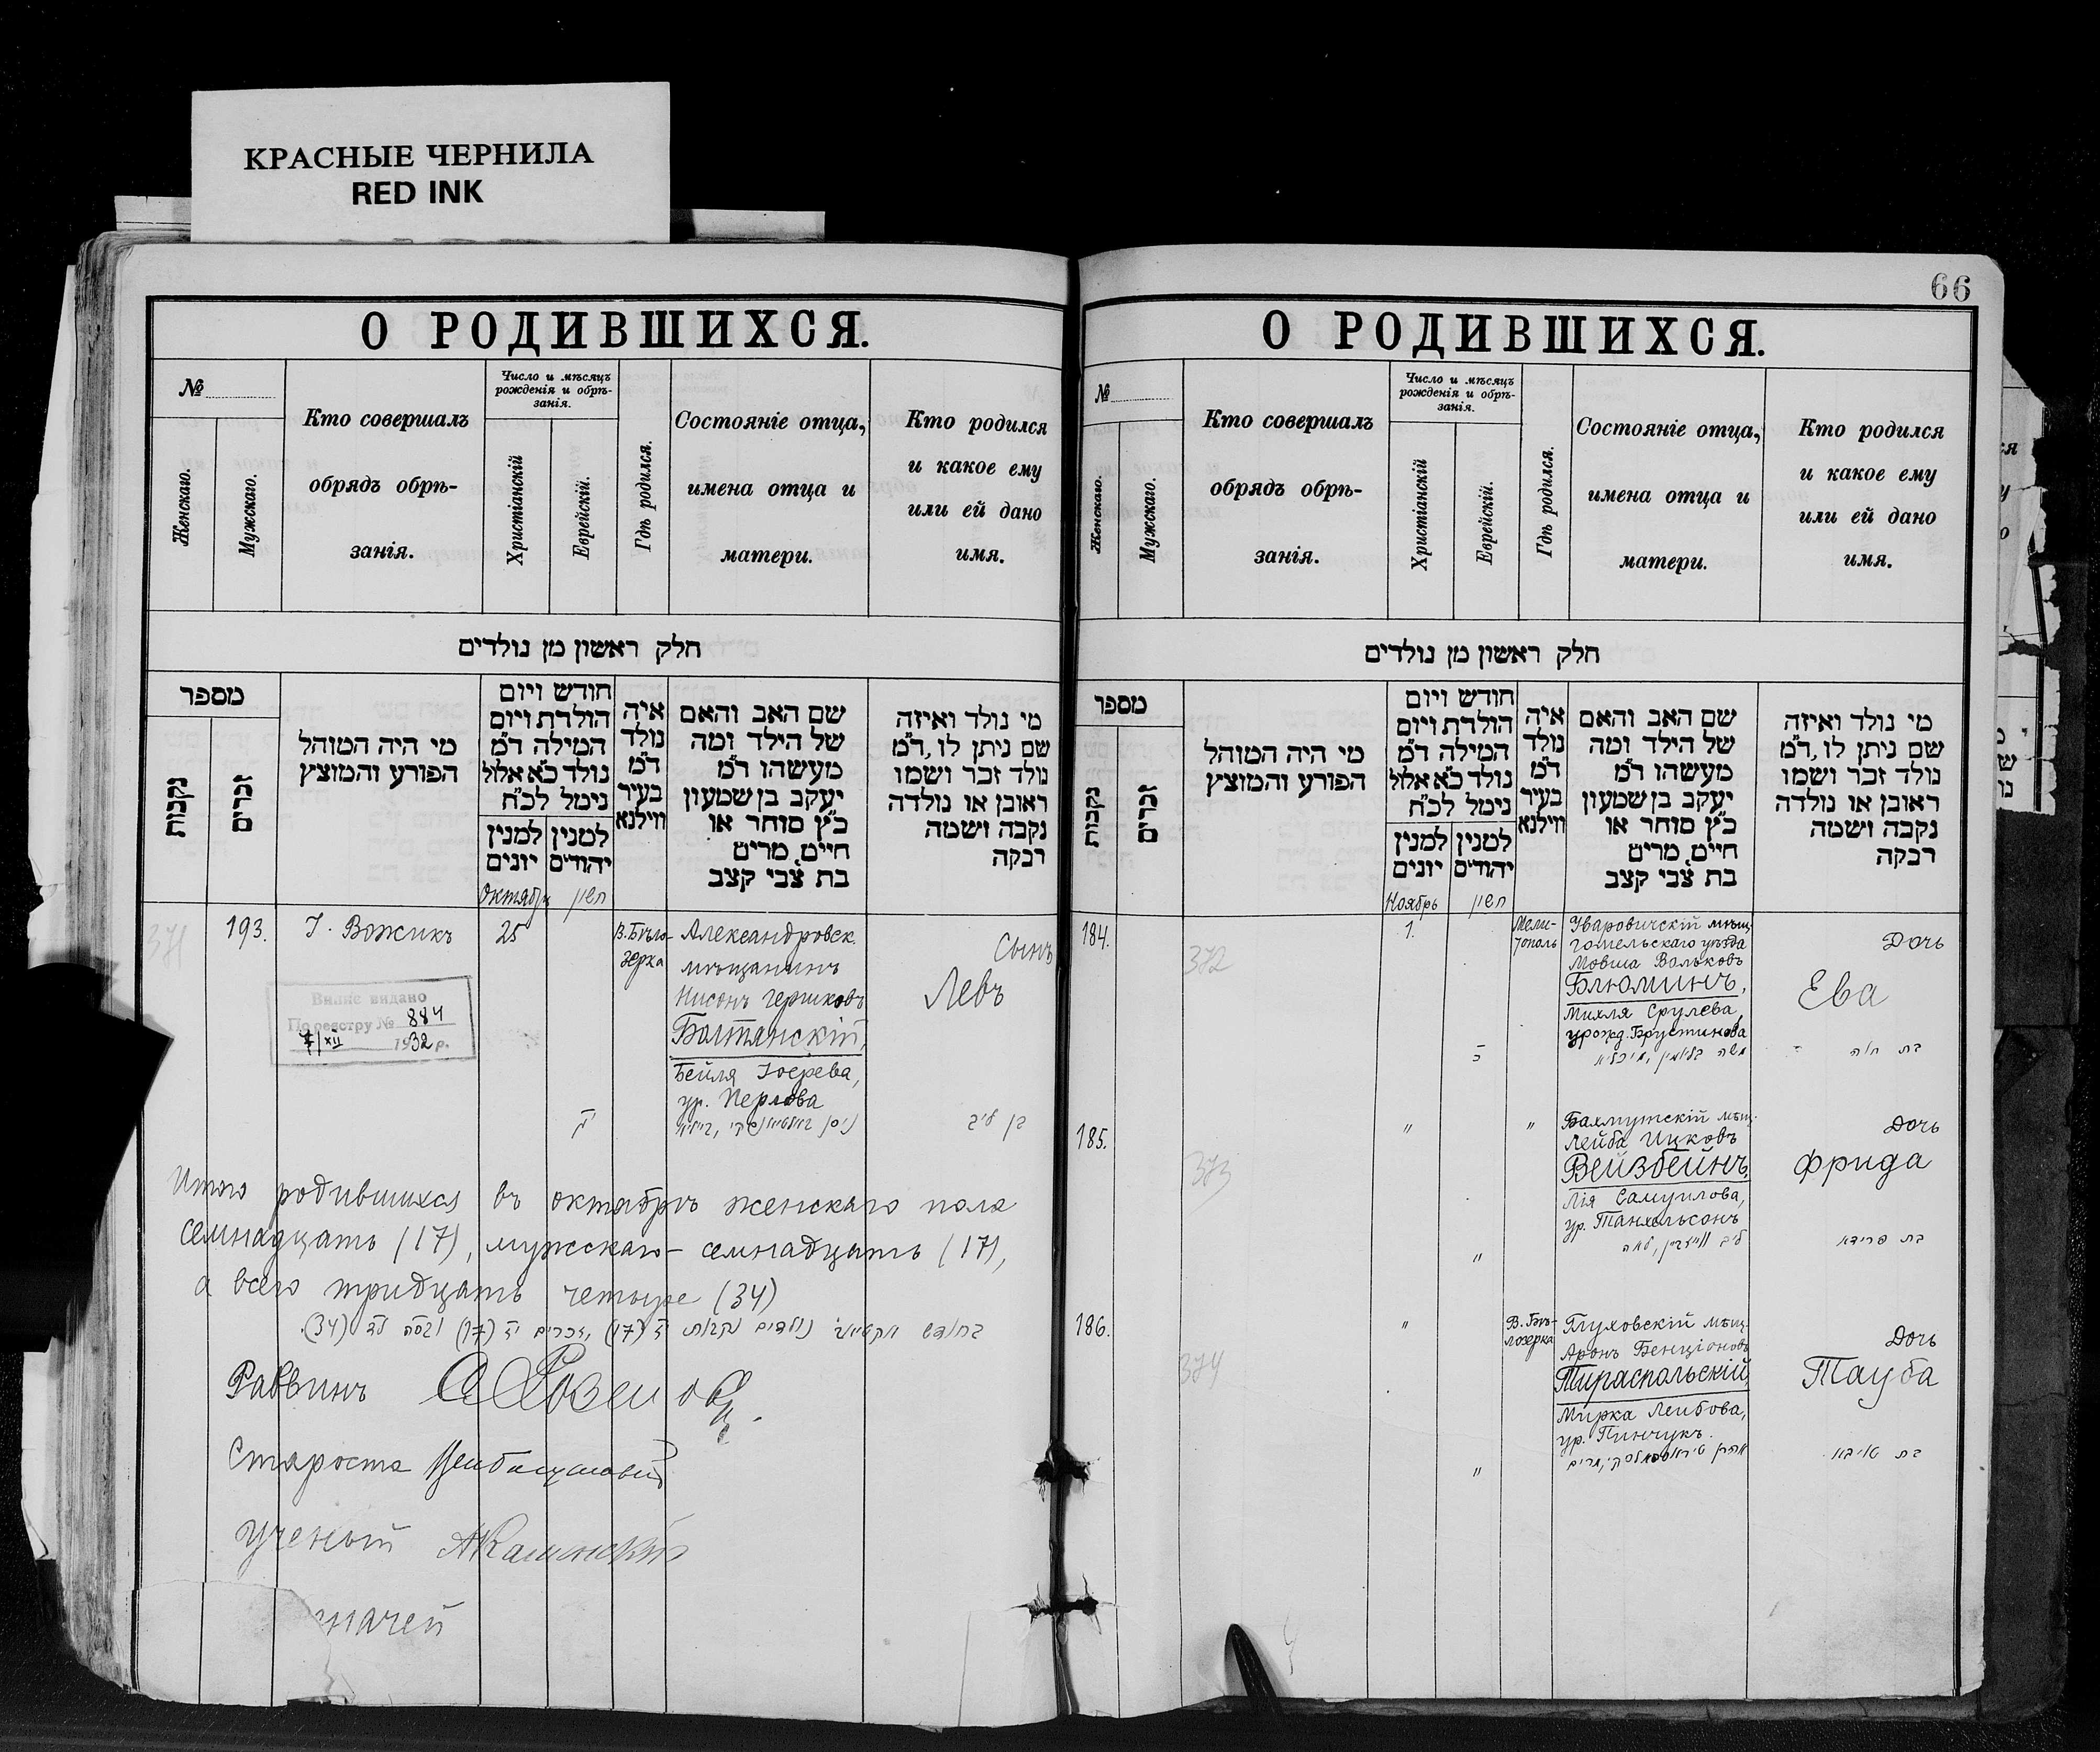 КРАСНЫЕ ЧЕРНИЛА
RED INK
О РОДИВШИХСЯ.
№
Женскаго.
Мужскаго.
Кто совершалъ
обрядъ обрѣ-
занія.
Число и мѣсяцъ
рожденія и обрѣ-
занія.
Христіанскій
Еврейскій.
Гдѣ родился.
Состояніе отца,
имена отца и
матери.
Кто родился
и какое ему
или ей дано
имя.
חלק ראשון מן נולדים
מספר
נקבות
זכרים
מי היה המוהל
הפורע והמוצץ
חודש ויום
הולדת ויום
המילה ד״מ
נולד כ״א אלול
נימל לכ״ח
למנין
יונים
למנין
יהודים
איה
נולד
ד״מ
בעיר
ווילנא
שם האב והאם
של הילד ומה
מעשהו ד״מ
יעקב בן שמעון
כ״ץ סוחר או
חיים, מרים
בת צבי קצב
מי נולד ואיזה
שם ניתן לו, ד״מ
נולד זכר ושמו
ראובן או נולדה
נקבה ושמה
רבקה
Октябрь
חשון
371
193.
І. Вожикъ
25
В. Бѣло-
зерка
Александровск.
мѣщанинъ
Нисонъ Гершковъ
Болтянскій,
Бейля Іосева,
ур. Перлова
Сынъ
Левъ
בן ליב
Випис видано
По реєстру № 884
7/XII 1932 р.
Итого родившихся въ октябрѣ женскаго пола
семнадцать (17), мужскаго - семнадцать (17),
а всего тридцать четыре (34)
בחודש אקטיאבר נולדים נקבות יז (17) וזכרים יז (17) ובסה לד (34).
Раввинъ
Староста
Ученый
начей
66
О РОДИВШИХСЯ.
№
Женскаго.
Мужскаго.
Кто совершалъ
обрядъ обрѣ-
занія.
Число и мѣсяцъ
рожденія и обрѣ-
занія.
Христіанскій
Еврейскій.
Гдѣ родился.
Состояніе отца,
имена отца и
матери.
Кто родился
и какое ему
или ей дано
имя.
חלק ראשון מן נולדים
מספר
נקבות
זכרים
מי היה המוהל
הפורע והמוצץ
חודש ויום
הולדת ויום
המילה ד״מ
נולד כ״א אלול
נימל לכ״ח
למנין
יונים
למנין
יהודים
איה
נולד
ד״מ
בעיר
ווילנא
שם האב והאם
של הילד ומה
מעשהו ד״מ
יעקב בן שמעון
כ״ץ סוחר או
חיים, מרים
בת צבי קצב
מי נולד ואיזה
שם ניתן לו, ד״מ
נולד זכר ושמו
ראובן או נולדה
נקבה ושמה
רבקה
Ноябрь
חשון
184.
372
1.
Мели-
тополь
Уваровичскій мѣщ.
Гомельскаго уѣзда
Мовша Вольковъ
Блюминъ,
Михля Срулева,
урожд. Брустинова
משה בליומין, מיכליא
Дочь
Ева
בת חוה
185.
373
"
"
Бахмутскій мѣщ.
Лейба Ицковъ
Вейзбейнъ,
Лія Самуилова,
ур. Танхельсонъ
"
Дочь
Фрида
בת פרידא
186.
374
"
В. Бѣ-
лозерка
Глуховскій мѣщ.
Аронъ Бенціоновъ
Тираспольскій,
Мирка Лейбова,
ур. Пинчукъ.
אהרן טיראספאלסקי, מרים
"
Дочь
Тауба
בת טויבא